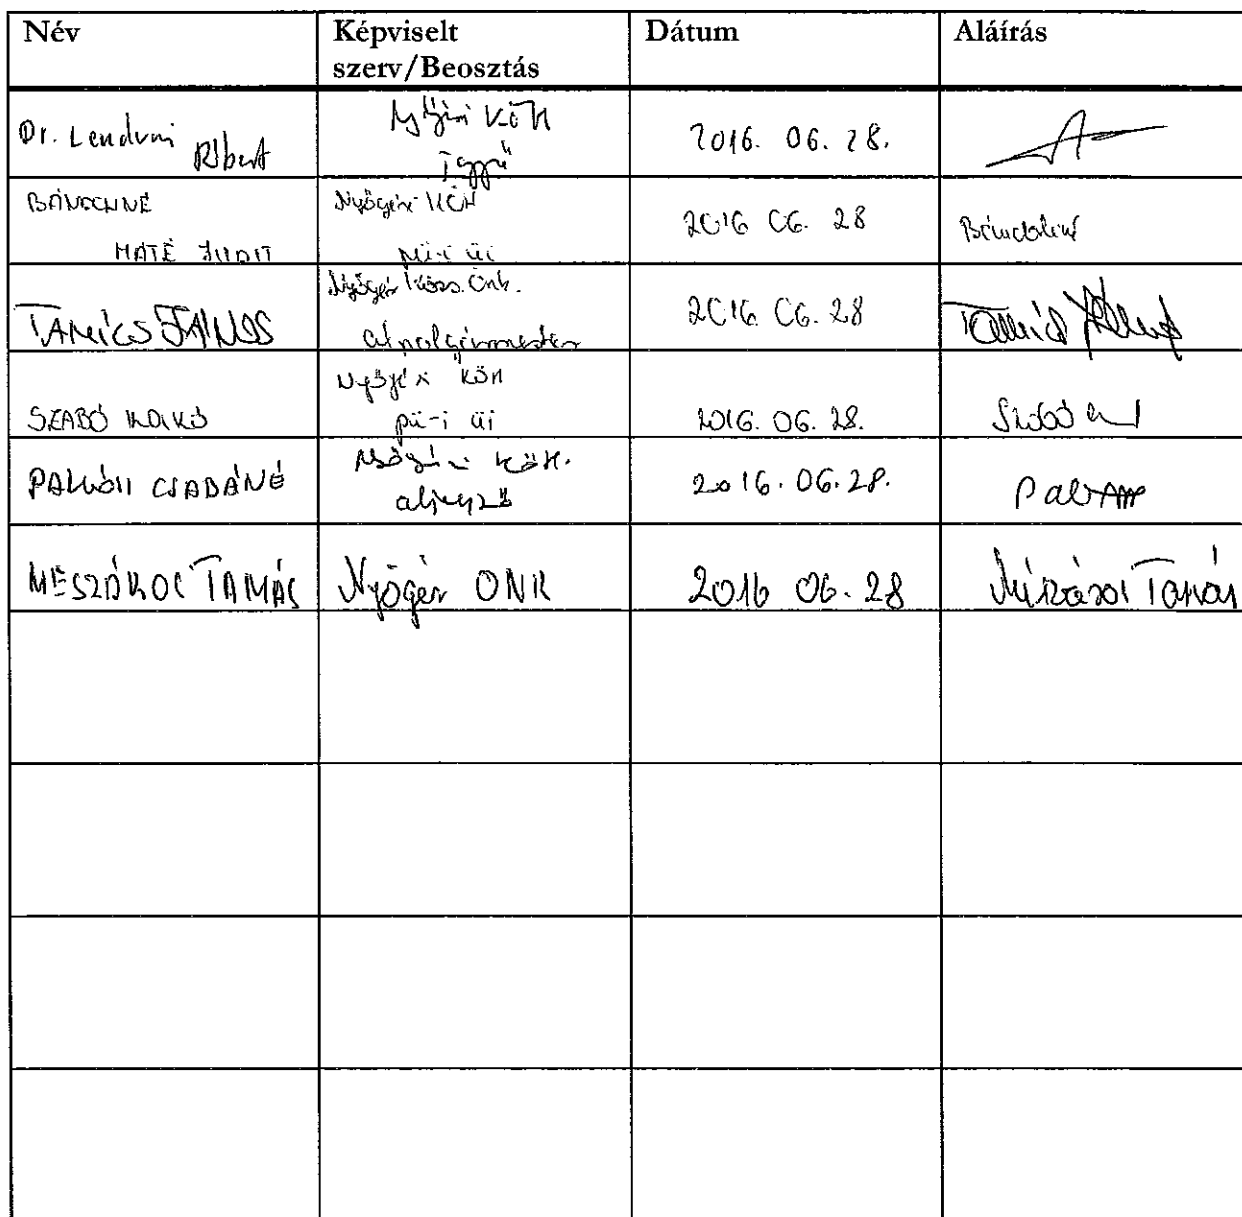 Név
Képviselt
szerv/Beosztás
Dátum
Aláírás
Dr. Lendvai
Albert
KÖH
2016. 06. 28.
MÁTÉ JUDIT
Nyőgéri KÖH
pü-i üi
2016 06. 28
TAMICS JÁNOS
Nyőgér Közs. Önk.
alpolgármester
2016 06. 28
SZABÓ
Nyőgéri KÖH
pü-i üi
2016. 06. 28.
Szabó
CSABÁNÉ
Nyőgéri KÖH.
aljegyző
2016. 06. 28.
MÉSZÁROS TAMÁS
Nyőgér ÖNK
2016 06. 28
Mészáros Tamás